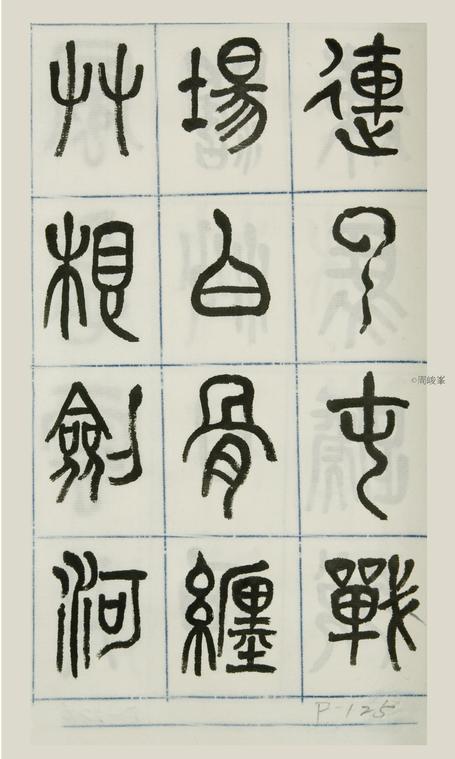 連云屯戰
場白骨纏
艸根劍河
P-125
©周峻峯